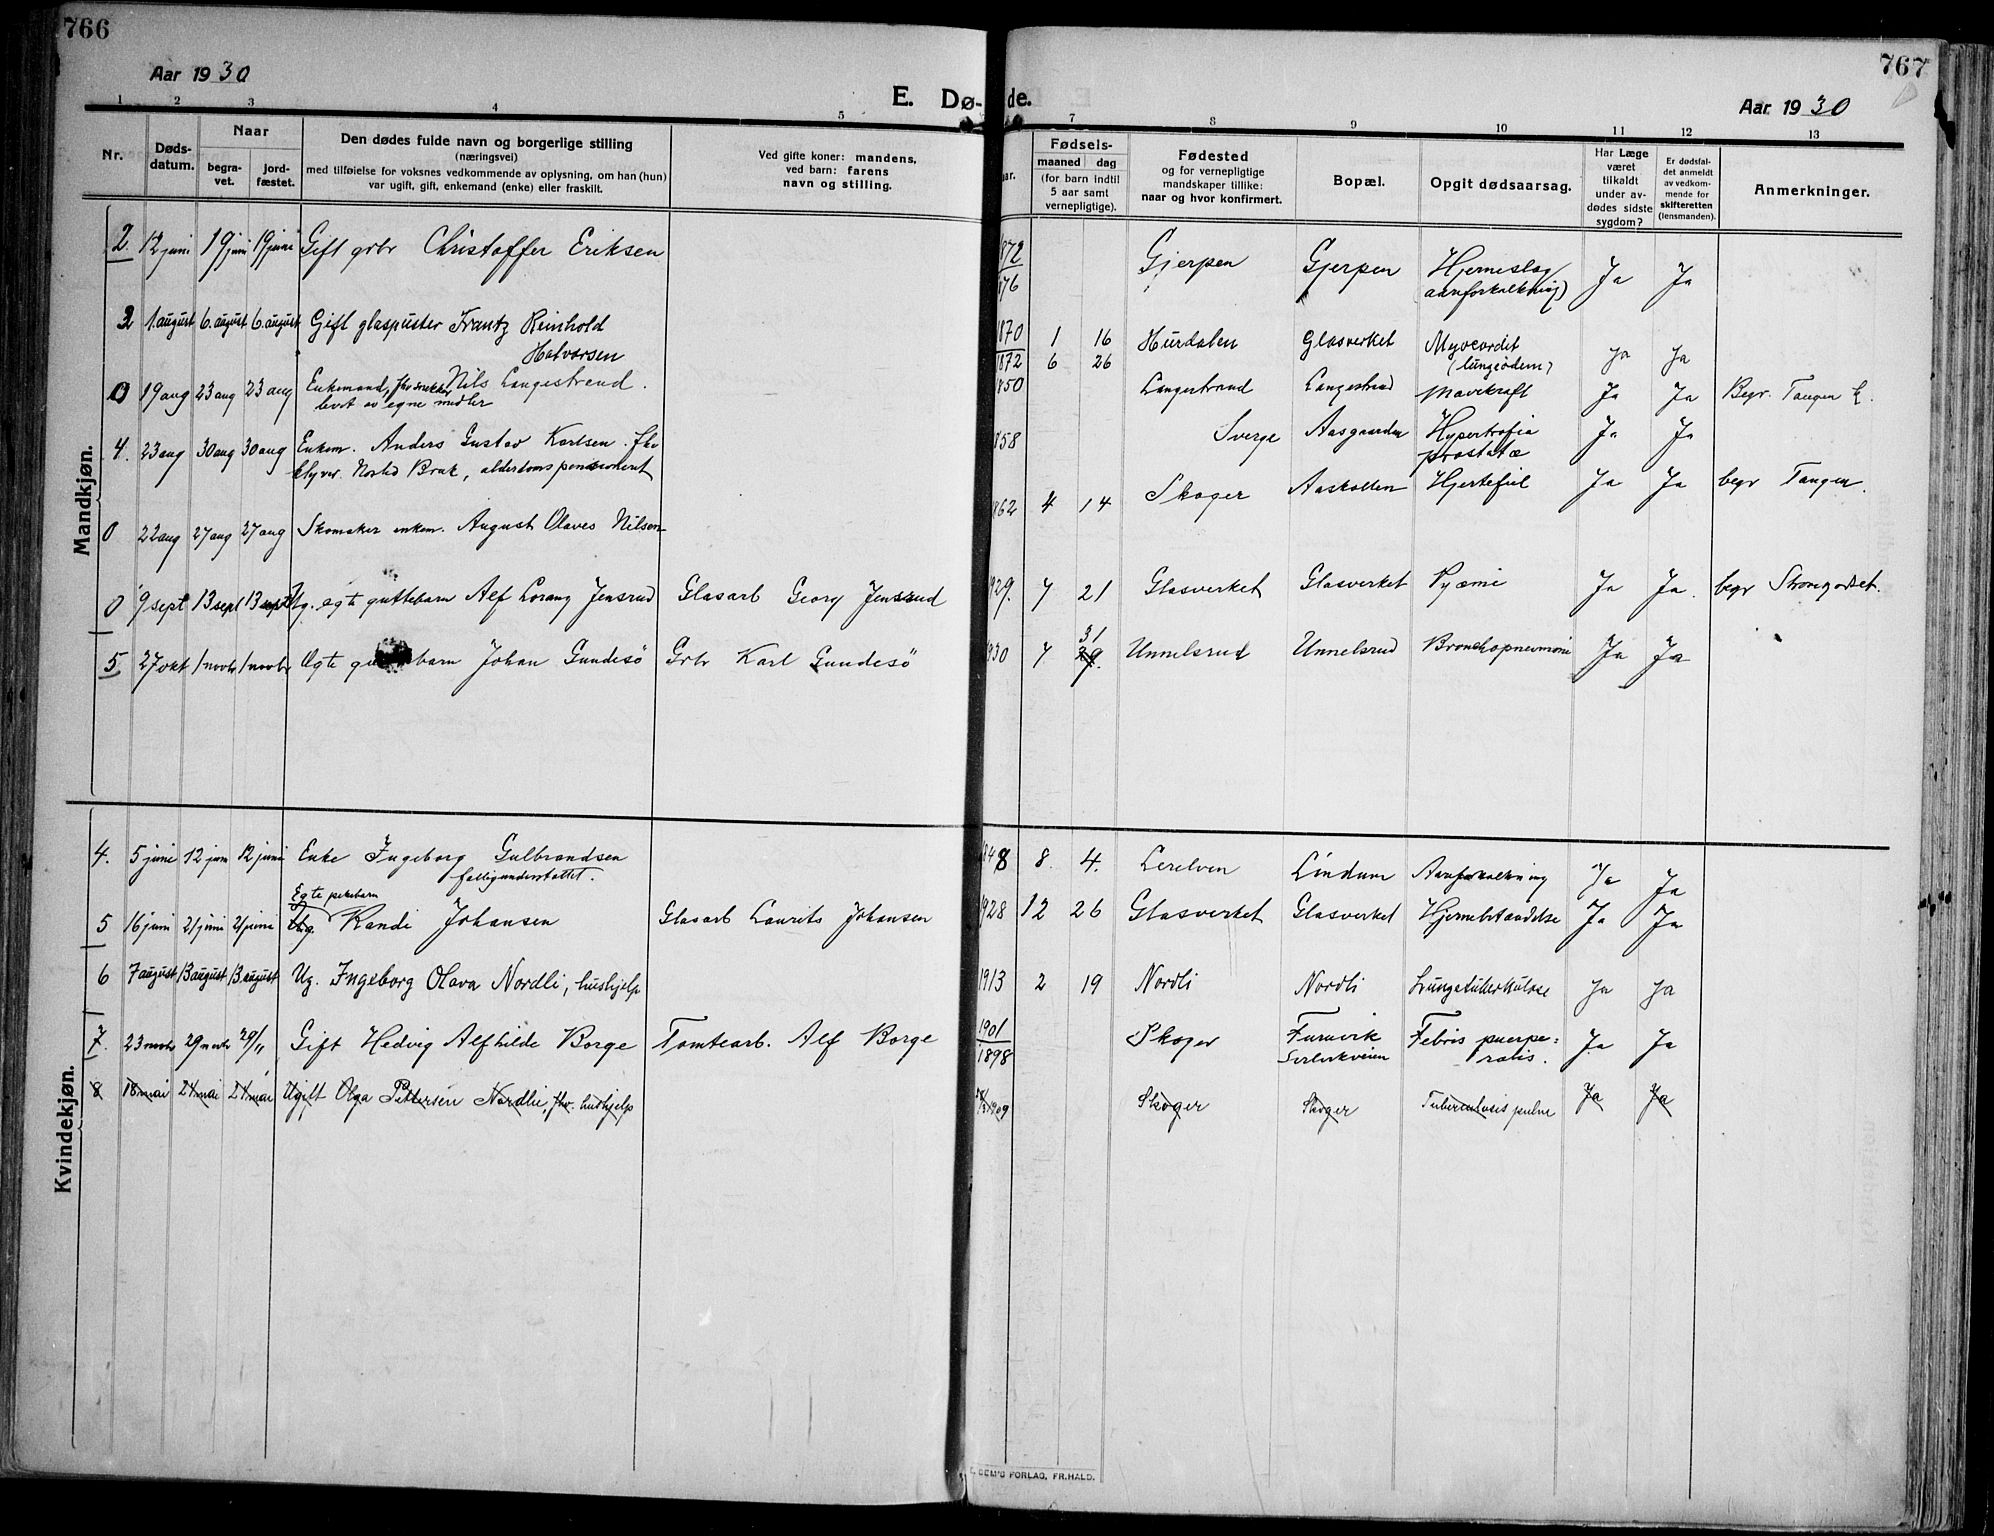 766
767
Aar 1930
E. Dø-
de.
Aar 1930
1 2 3 4 5
7 8 9 10 11 12 13
Nr.
Døds-
datum.
Naar
begra-
vet.
jord-
fæstet.
Den dødes fulde navn og borgerlige stilling
(næringsvei)
med tilføielse for voksnes vedkommende av oplysning, om han (hun)
var ugift, gift, enkemand (enke) eller fraskilt.
Ved gifte koner: mandens,
ved barn: farens
navn og stilling.
Fødsels-
maaned dag
(for barn indtil
5 aar samt
vernepligtige).
Fødested
og for vernepligtige
mandskaper tillike:
naar og hvor konfirmert.
Bopæl.
Opgit dødsaarsag.
Har Læge
været
tilkaldt
under av-
dødes sidste
sygdom?
Er dødsfal-
det anmeldt
av vedkom-
mende for
skifteretten
(lensmanden).
Anmerkninger.
Mandkjøn.
2. 12 juni 19 juni 19 juni Gift grbr Christoffer Eriksen 1872 Gjerpen Gjerpen Hjerneslag Ja Ja
76 (aareforkalkning)
3 1. august 6. august 6. august Gift glaspuster Frantz Reinhold 1870 1 16 Hurdalen Glasverket Myocordit Ja Ja
Halvorsen 1872 6 26 (lungeødem)
0 19 aug 23 aug 23 aug Enkemand, fhv snekker Nils Langestrand. 1850 Langestrand Langestrand Mavekræft Ja Ja Begr. Tangen
levet av egne midler
4. 23 aug 30 aug 30 aug Enkem. Anders Gustav Karlsen fhv 1858 Sverge Aasgaarden Hypertrofia Ja Ja
Bruk, alderdomspensionert prostatæ
0 22 aug 27 aug 27 aug Skomaker enkem. August Olaves Nilsen 1862 4 14 Skoger Aaskollen Hjertefeil Ja Ja begr Tangen.
0 9 sept 13 sept 13 sept Ug. egte guttebarn Alf Lorang Jensrud Glasarb Georg Jensrud 1929. 7 21 Glasverket Glasverket Pyæmi Ja Ja. begr Strømgodset.
31
5. 27 okt 1 novbr 1 novbr Ægte guttebarn Johan Gundesø Grbr Karl Gundesø 1930 7 29. Unnelsrud Unnelsrud Bronchopneumoni Ja Ja
Kvindekjøn.
4. 5 juni 12 juni 12 juni Enke Ingeborg Gulbrandsen 1848 8. 4. Lerelven Lindum Aareforkalkning Ja Ja
fattigunderstøttet.
Egte pikebarn
5 16 juni 21 juni 21 juni Ug. Randi Johansen Glasarb Laurits Johansen 1928 12 26 Glasverket Glasverket Hjernebetændelse Ja Ja
6 7 august 13 august 13 august Ug. Ingeborg Olava Nordli, hushjelp 1913 2 19 Nordli Nordli Lungetuberkulose Ja Ja
7. 23 novbr 29 novbr 29/11 Gift Hedvig Alfhilde Borge Tomtearb. Alf Borge 1901 Skoger Furuvik Febris puerpe- Ja Ja
1898 ralis.
8 18 mai 24 mai 24 mai Ugift Olga Pettersen Nordlie, fhv. hushjelp 1909 Skoger Skoger Tuberculosis pulm Ja Ja
FORLAG, FR. HALD.